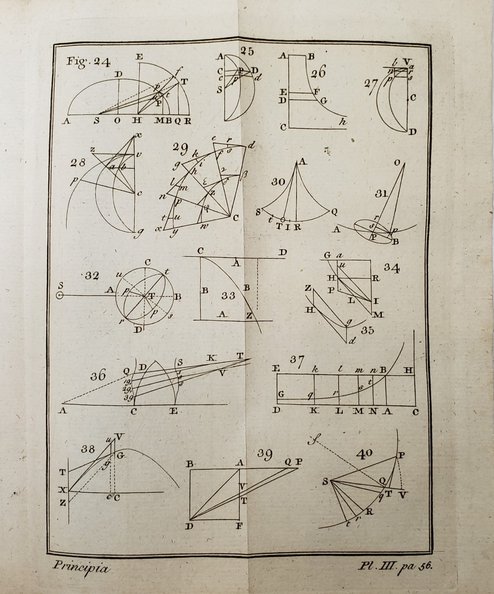 Fig. 24
25
26
27
E
D
f
T
P
A S O H M B Q R
A
C
S
D
d
A B
E F
D G
C
h
l V
C
D
28
29
30
31
x
z
v
a b
p
c
g
e r d
k
g
h
l m
n
C
x y w
A
S Q
t T I R
O
A
r
P
B
32
33
34
35
S
C
u t
A
p T
B
r P s
D
C D
A
B
A Z
G a
u
H R
P
L I
M
Z
H
g
d
36
37
Q D S K T
V
A C E
E k l m n B H
G q r s t
D K L M N A C
38
39
40
u V
G
T g
X
Z
c C
B A Q P
V
T
D F
S
P
Q
q T V
R
t r
Principia
Pl. III. pa 56.